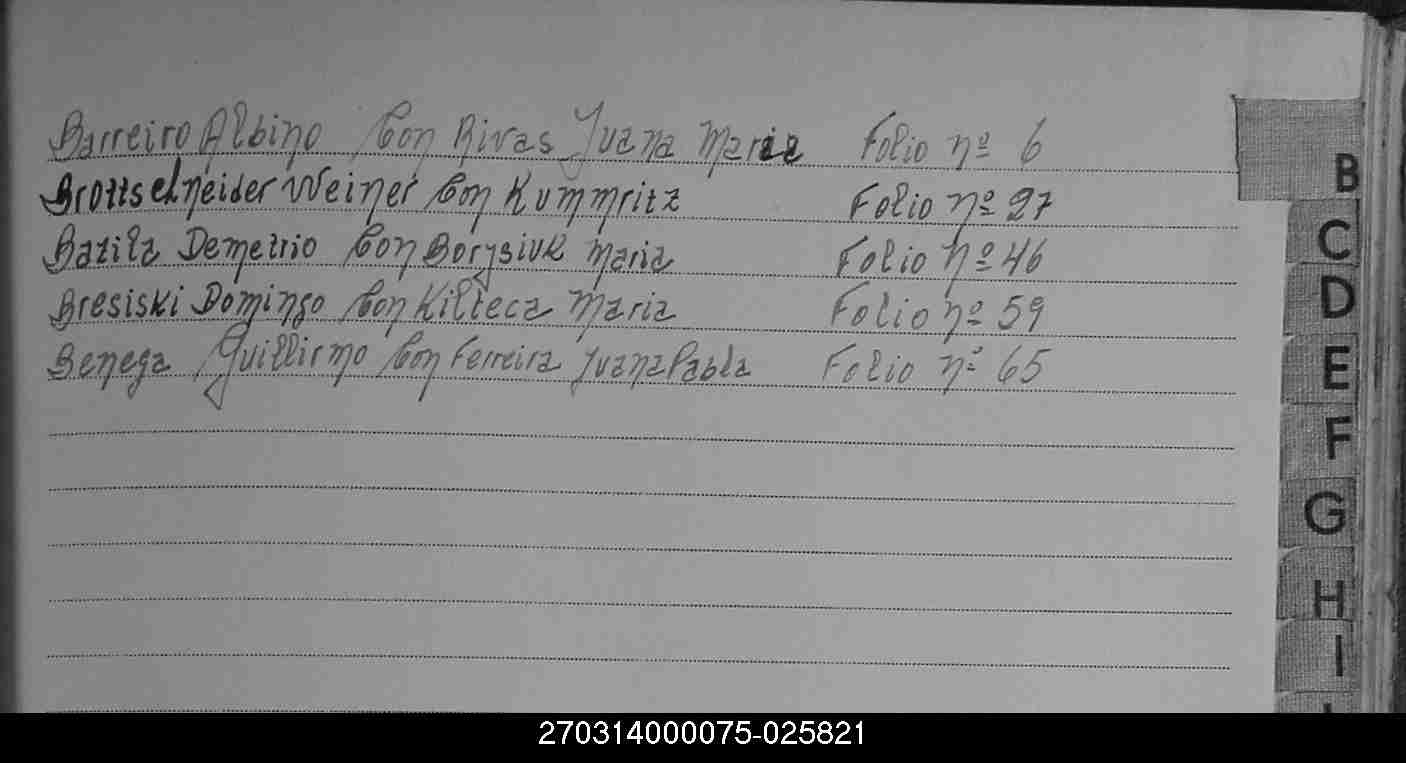 Barreiro Albino Con Rivas Juana Maria Folio nº 6
Brottselneider Weiner Con Kummritz Folio nº 27
Bazila Demetrio Con Borysiuk Maria Folio nº 46
Bresiski Domingo Con Kilteca Maria Folio nº 59
Benega Guillirmo Con Ferreira Juana Pabla Folio nº 65
B
C
D
E
F
G
H
I
270314000075-025821